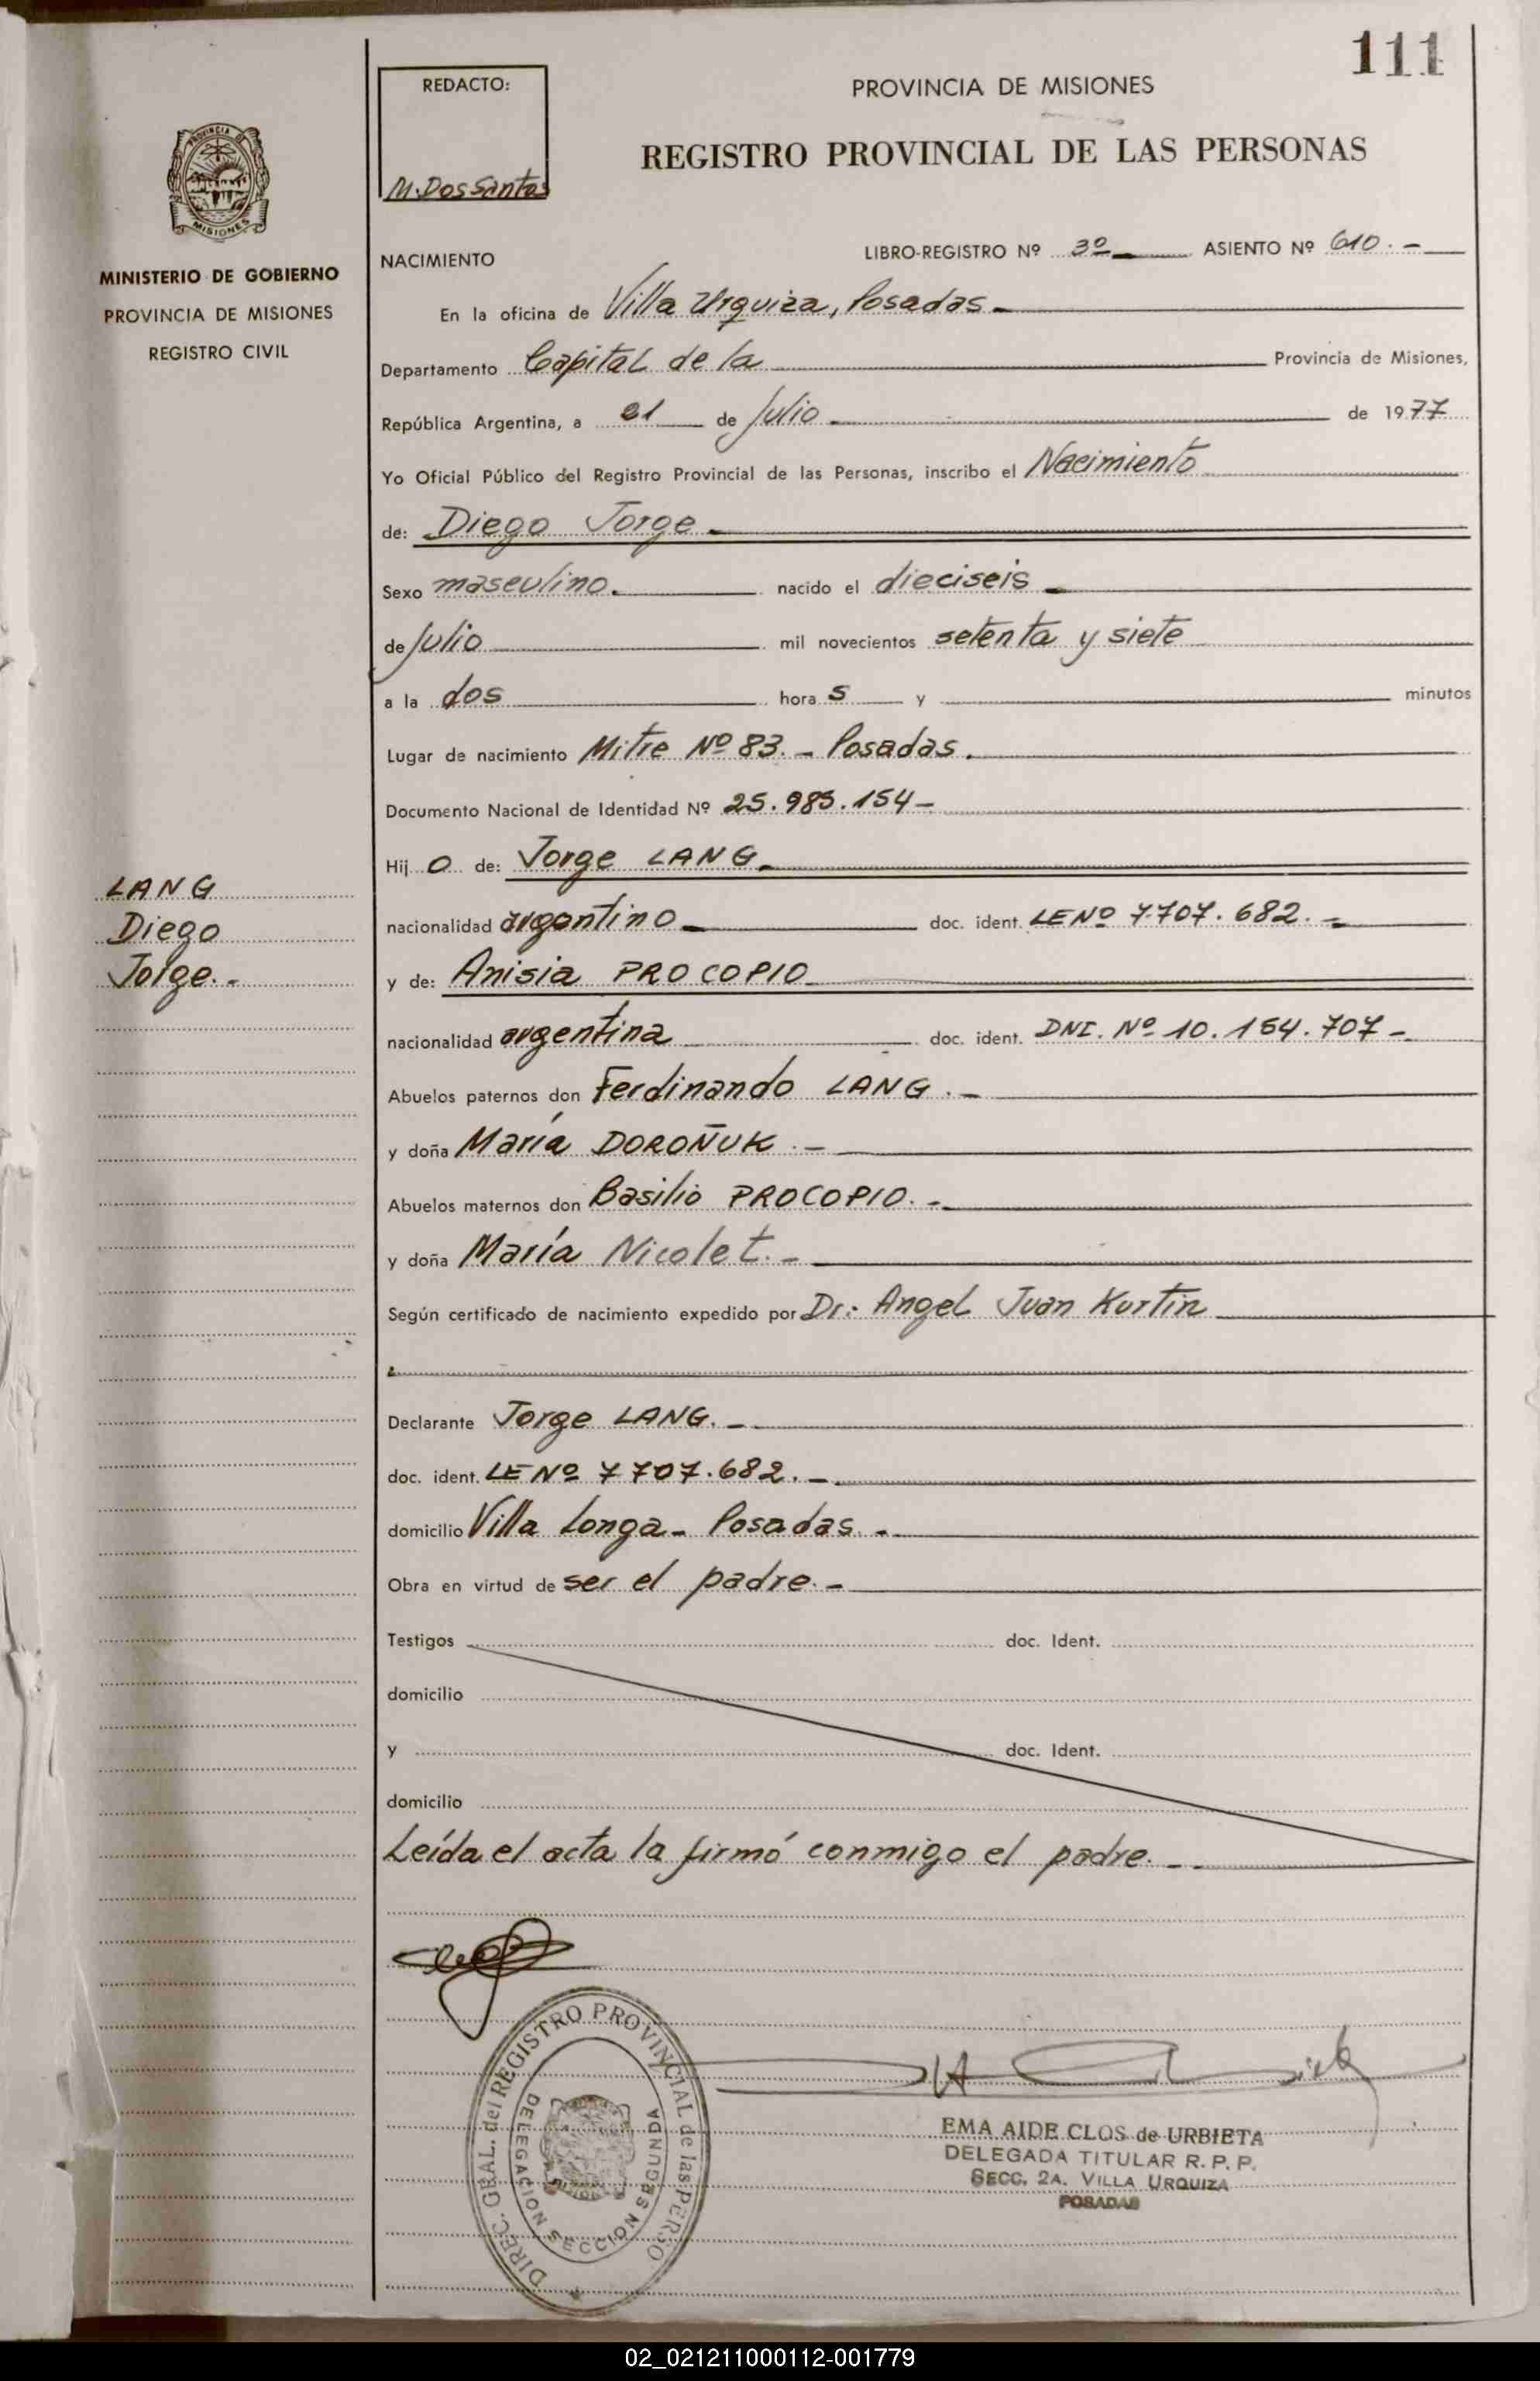 111
REDACTO:
M. Dos Santos
PROVINCIA DE MISIONES
REGISTRO PROVINCIAL DE LAS PERSONAS
PROVINCIA DE
MISIONES
MINISTERIO DE GOBIERNO
PROVINCIA DE MISIONES
REGISTRO CIVIL
NACIMIENTO LIBRO-REGISTRO Nº 3º ASIENTO Nº 610.-
En la oficina de Villa Urquiza, Posadas.-
Departamento Capital de la Provincia de Misiones,
República Argentina, a 21 de Julio de 1977
Yo Oficial Público del Registro Provincial de las Personas, inscribo el Nacimiento
de: Diego Jorge.-
Sexo masculino. nacido el dieciseis
de Julio mil novecientos setenta y siete
a la dos hora s y minutos
Lugar de nacimiento Mitre Nº 83.- Posadas.
Documento Nacional de Identidad Nº 25.985.154-
Hij o de: Jorge LANG.
LANG
Diego
Jorge.-
nacionalidad argentino doc. ident. LE Nº 7.707.682.-
y de: Anisia PROCOPIO
nacionalidad argentina doc. ident. DNI. Nº 10.154.707-
Abuelos paternos don Ferdinando LANG.-
y doña María DOROÑUK.-
Abuelos maternos don Basilio PROCOPIO.-
y doña María Nicolet.-
Según certificado de nacimiento expedido por Dr: Angel Juan Kurtin
Declarante Jorge LANG.-
doc. ident. LE Nº 7707.682.-
domicilio Villa Longa- Posadas.-
Obra en virtud de ser el padre.-
Testigos doc. Ident.
domicilio
y doc. Ident.
domicilio
Leída el acta la firmó conmigo el padre.-
DIREC. GRAL. del REGISTRO PROVINCIAL de las PERSO
DELEGACION SECCION SEGUNDA
EMA AIDE CLOS de URBIETA
DELEGADA TITULAR R. P. P.
SECC. 2A. VILLA URQUIZA
POSADAS
02_021211000112-001779